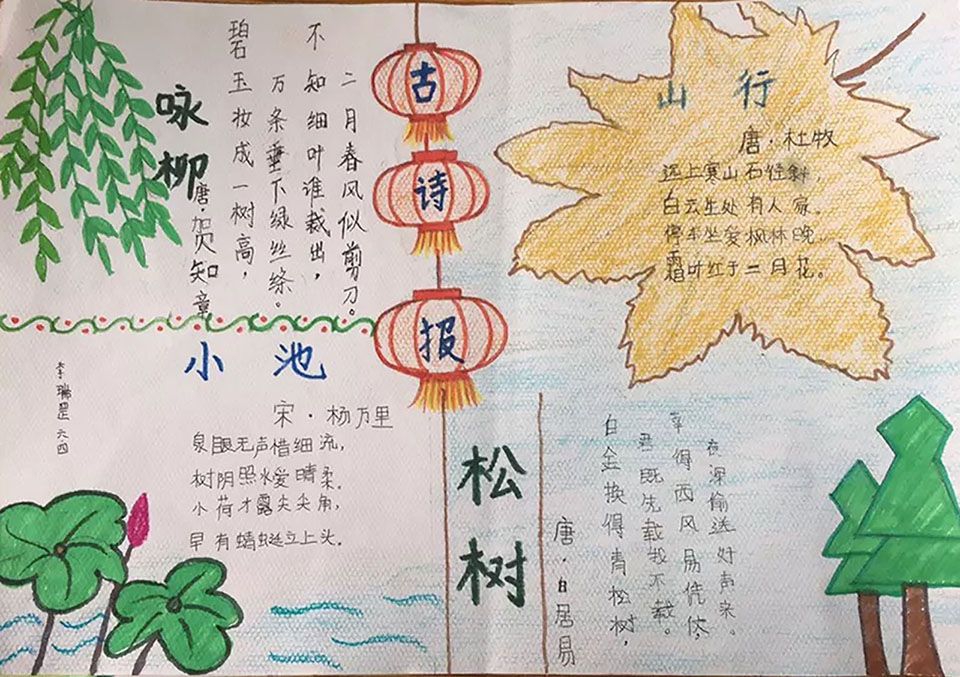 古诗报
咏柳
唐·贺知章
碧玉妆成一树高，
万条垂下绿丝绦。
不知细叶谁裁出，
二月春风似剪刀。
山行
唐·杜牧
远上寒山石径斜，
白云生处有人家。
停车坐爱枫林晚，
霜叶红于二月花。
小池
宋·杨万里
泉眼无声惜细流，
树阴照水爱晴柔。
小荷才露尖尖角，
早有蜻蜓立上头。
李瑞罡 六四
松树
唐·白居易
白金换得青松树，
君既先载我不载。
幸得西风易凭
夜深偷送好声来。